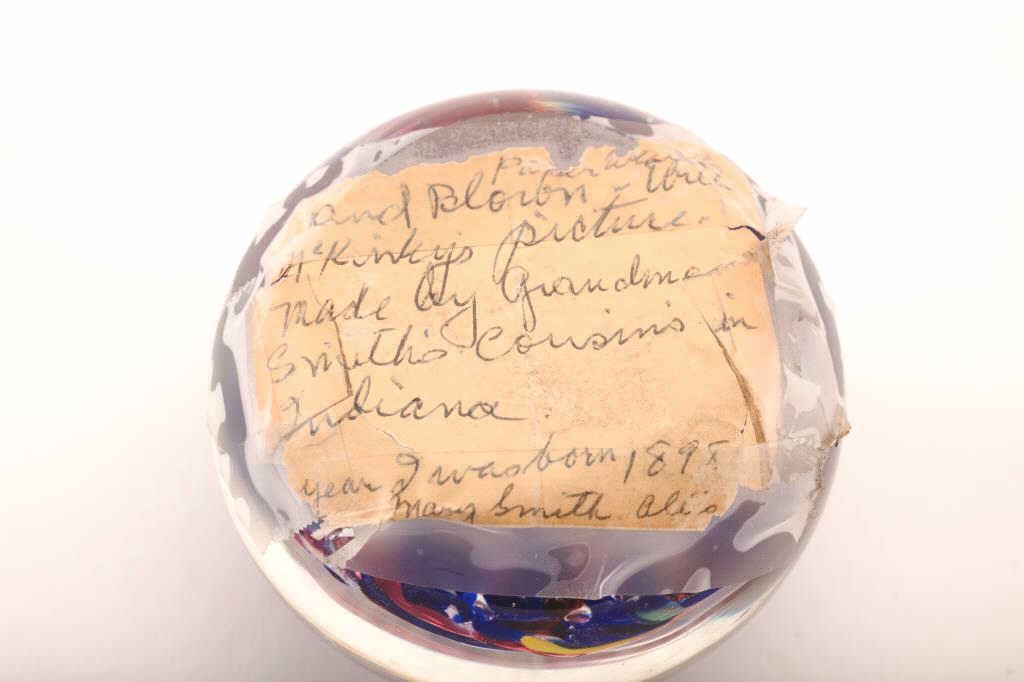 Paper Wei
and Blown - three
McKinkys picture.
Made by Grandma
Smith's Cousins in
Indiana.
year I was born, 1895
Mary Smith